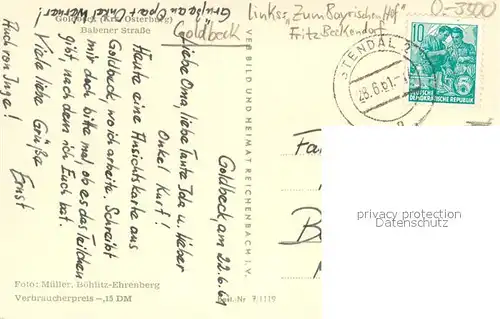 Goldbeck (Krs. Osterburg)
Babener Straße
Goldbeck
Links: "Zum Bayrischen Hof"
Fritz Beckendorf
O-3500
Goldbeck, am 22.6.61
Liebe Oma, liebe Tante Ida u. lieber
Onkel Kurt!
Heute eine Ansichtskarte aus
Goldbeck, wo ich arbeite. Schreibt
mir doch bitte mal ob es das Teilchen
gibt, nach dem ich Euch bat.
Viele liebe Grüße
Ernst
Auch von Inge!
Grüße an Opa + Onkel Werner!
VEB BILD UND HEIMAT REICHENBACH I. V.
STENDAL 2
28.6.61
10
5
DEUTSCHE
DEMOKRATISCHE REPUBLIK
Fa
B
privacy protection
Datenschutz
Foto: Müller, Böhlitz-Ehrenberg
Verbraucherpreis –,15 DM
Best.-Nr. 7/1119